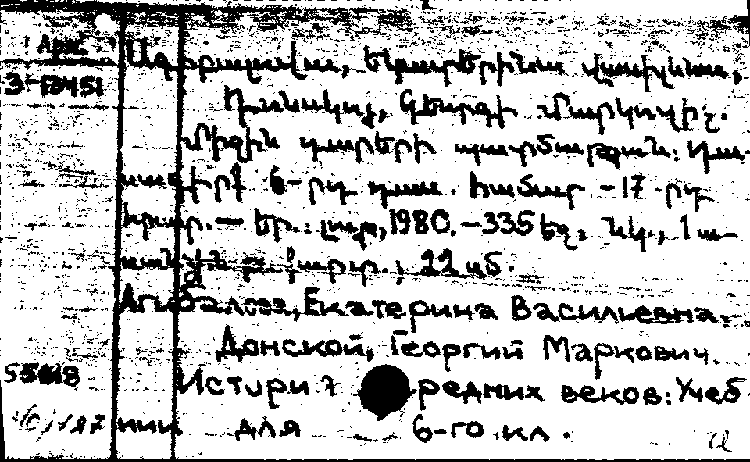 Արм.
3-13451
Ագիբալովա, Եկատերինա Վասիլևնա,
Դոնսկոյ, Գեորգի Մարկովիչ.
Միջին դարերի պատմություն: Դա-
սագիրք 6-րդ դաս. համար - 17-րդ
հրատ. — Եր.: Լույս, 1980. - 335 էջ, նկ., 1 առ-
22 սմ.
Агибалова, Екатерина Васильевна,
Донской, Георгий Маркович.
История средних веков: Учеб-
ник для 6-го кл.